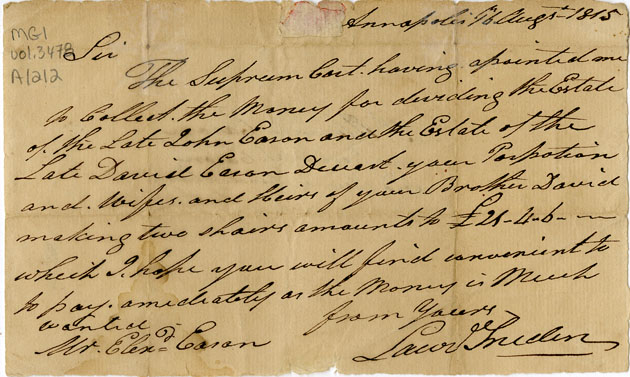 Annapolis 16 Augst 1815
MG1
vol. 3478
A/2/2
Sir
The Suprem Cort. having apointed me
to Collect. the Money for deviding the Estate
of. the Late John Eason and the Estate of the
Late David Eason Deceast. your Porpotion
and. Wifes. and Heirs of your Brother David
making two shairs amounts to £21-4-6-
which I hope you will find convenient to
to pay. amediately as the Money is Much
wanted from Yours
Mr. Elexd. Eason Lawd Sneden